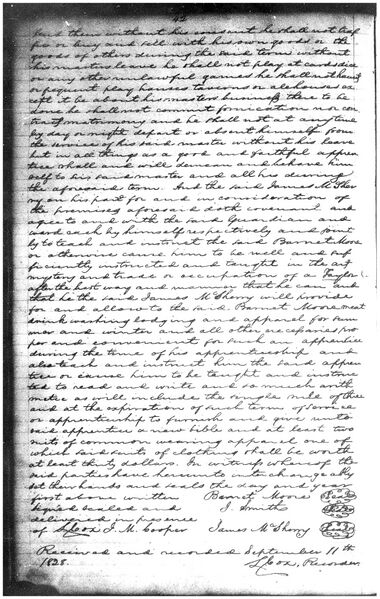 42
lend them without his consent he shall not traf
fic or buy and sell with his own goods or the
goods of others during the said term without
his masters leave he shall not play at cards dice
or any other unlawful games he shall not haunt
or frequent play houses taverns or alehouses ex
cept it be about his masters business there to be
done he shall not commit fornication nor con
tract matrimony and he shall not at any time
by day or night depart or absent himself from
the service of his said master without his leave
but in all things as a good and faithful appren
tice shall and will demean and behave him
self to his said master and all his during
the aforesaid term. And the said James McSher
ry on his part for and in consideration of
the premises aforesaid doth covenant and
agree to and with the said Guardian and
ward each by himself respectively and joint
ly to teach and instruct the said Barnet Moore
or otherwise cause him to be well and suf
ficiently instructed and taught in the art
mystery and trade or occupation of a Taylor
after the best way and manner that he can and
that he the said James McSherry will provide
for and allow to the said Barnet Moore meat
drink washing lodging and apparel for sum
mer and winter and all other necessaries pro
per and convenient for such an apprentice
during the time of his apprenticeship and
also teach and instruct him the said appren
tice or cause him to be taught and instruc
ted to read and write and so much arith
metic as will include the single rule of three
and at the expiration of such term of service
or apprenticeship to furnish and give unto
said apprentice a new bible and at least two
suits of common wearing apparel one of
which said suits of clothing shall be worth
at least thirty dollars. In witness whereof the
said parties have hereunto interchangeably
set their hands and seals the day and year
first above written Barnet Moore Seal
Signed sealed and J. Smith Seal
delivered in presence
of S Cox J. M. Cooper James McSherry Seal
Received and recorded September 11th
1828. S Cox, Recorder